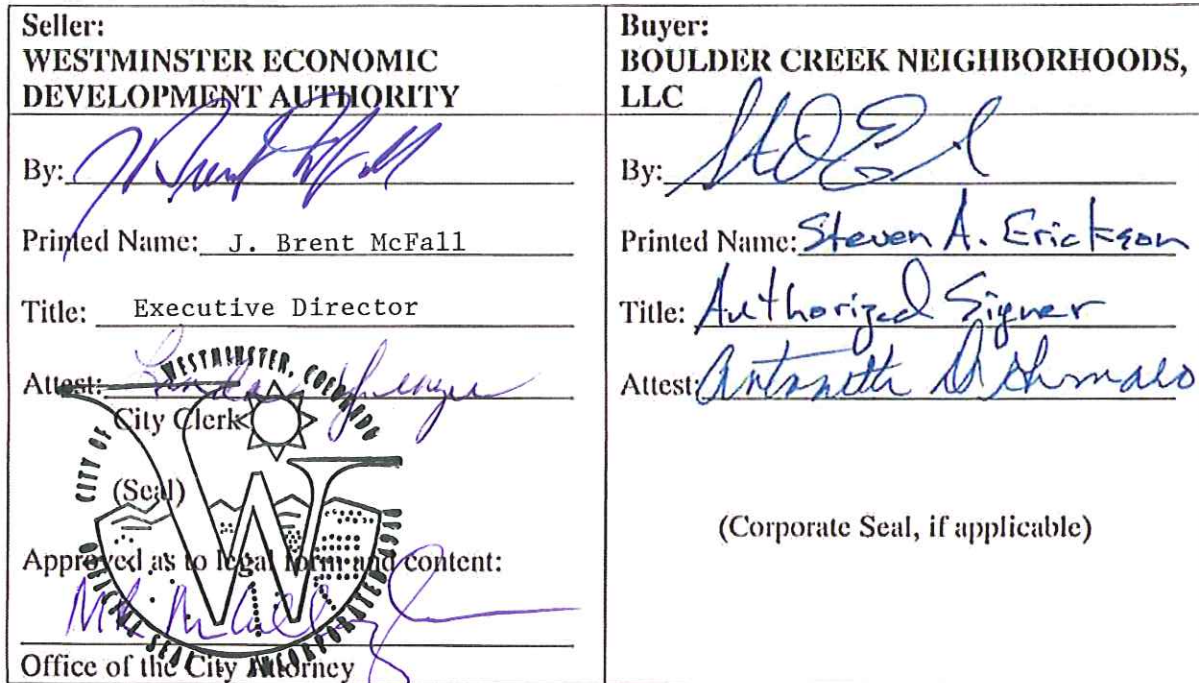 Seller:
WESTMINSTER ECONOMIC
DEVELOPMENT AUTHORITY
By:
Printed Name: J. Brent McFall
Title: Executive Director
Attest:
City Clerk
(Seal)
CITY OF WESTMINSTER, COLORADO
OFFICIAL SEAL INCORPORATED 1911
Approved as to legal form and content:
Office of the City Attorney
Buyer:
BOULDER CREEK NEIGHBORHOODS,
LLC
By:
Printed Name: Steven A. Erickson
Title: Authorized Signer
Attest:
(Corporate Seal, if applicable)